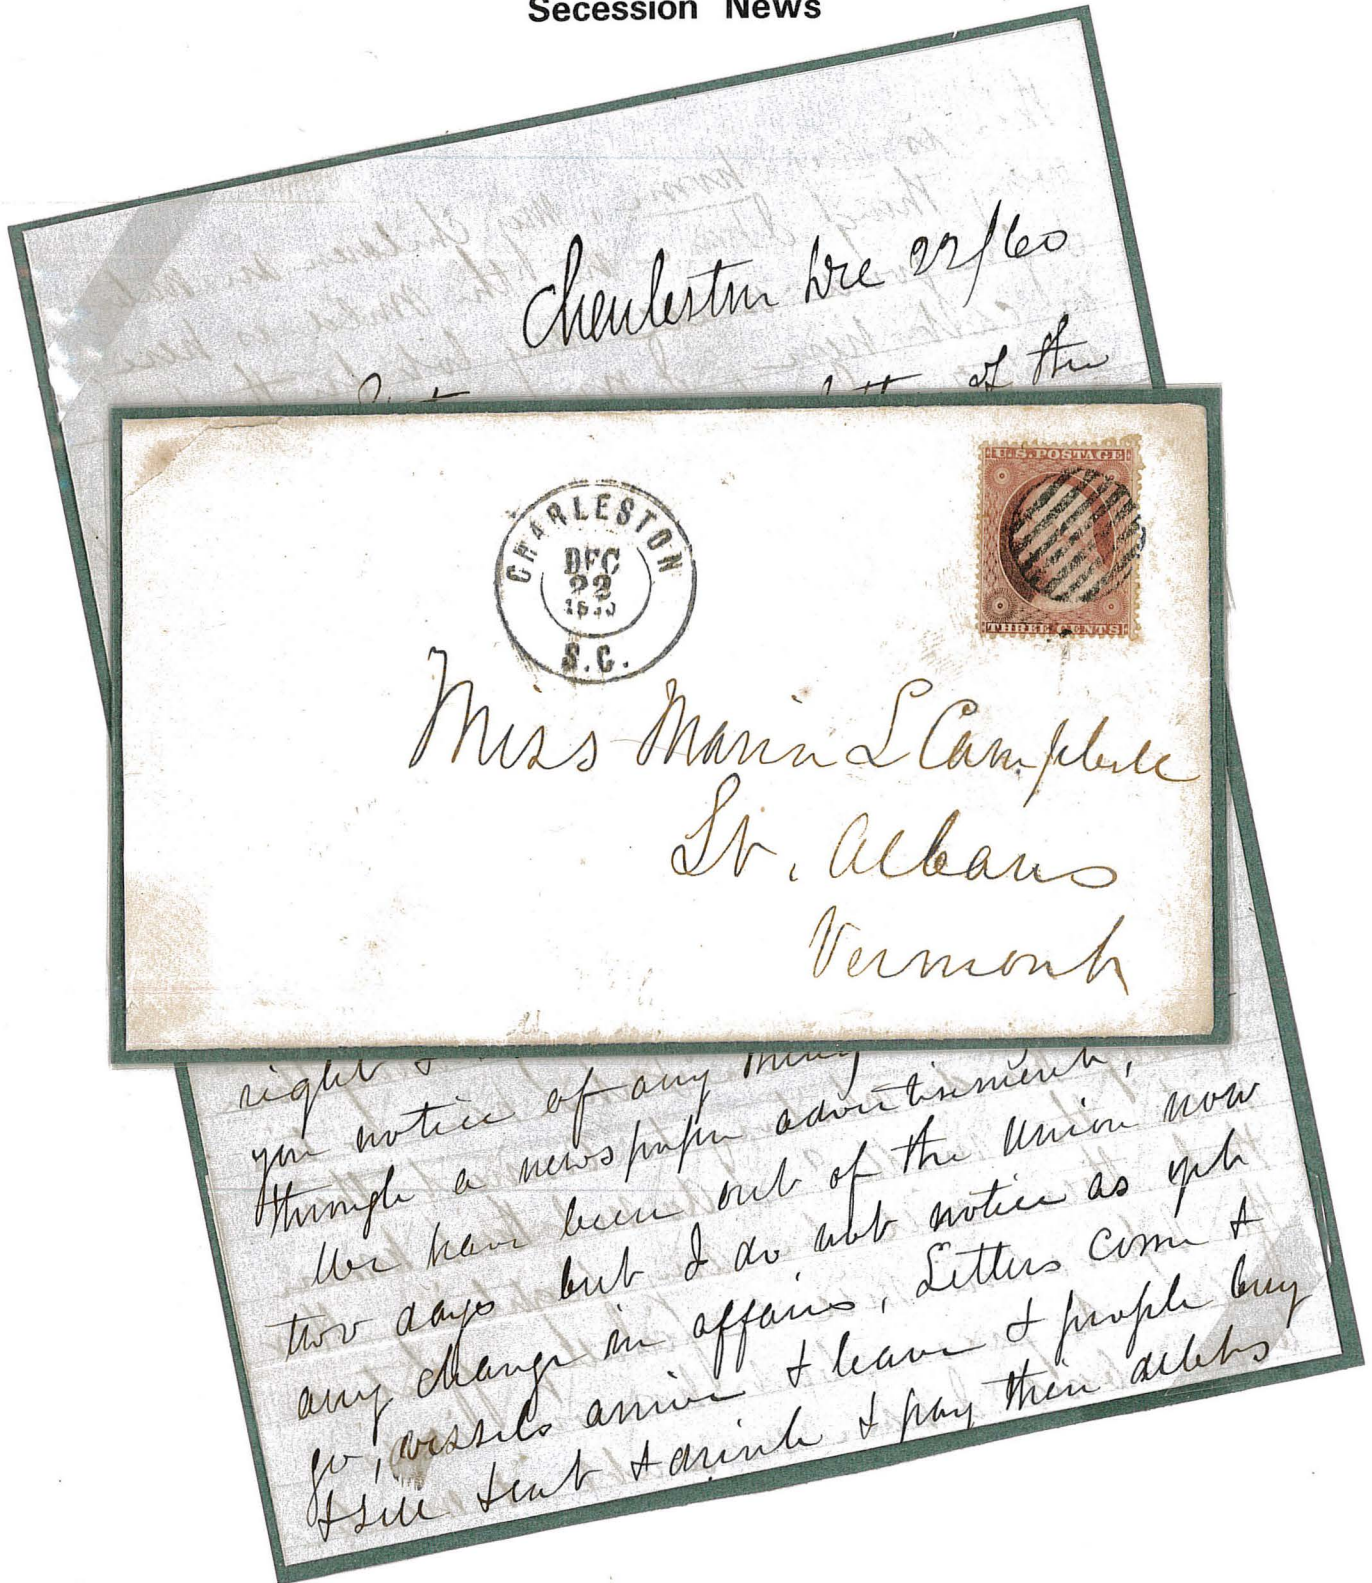 Secession News
Charleston Dec 22/60
of the
CHARLESTON
DEC
22
S.C.
U.S. POSTAGE
THREE CENTS
Miss Maria L Campbell
St. Albans
Vermont
right &
you notice of any thing
through a newspaper advertisment,
We have been out of the Union now
two days but I do not notice as yet
any change in affairs, Letters come &
go, vessels arrive & leave & people buy
& sell & eat & drink & pay their debts